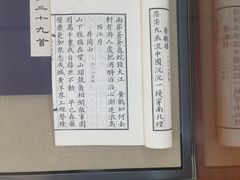 茫茫九派流中國沉沉一綫穿南北煙
雨莽蒼蒼龜蛇鎖大江 黃鶴知何去
剩有遊人處把酒酹滔滔心潮逐浪高
西江月
井岡山
山下旌旗在望山頭鼓角相聞敵軍
圍困萬千重我自巋然不動 早已森嚴
壁壘更加衆志成城黃洋界上炮聲隆
三十九首